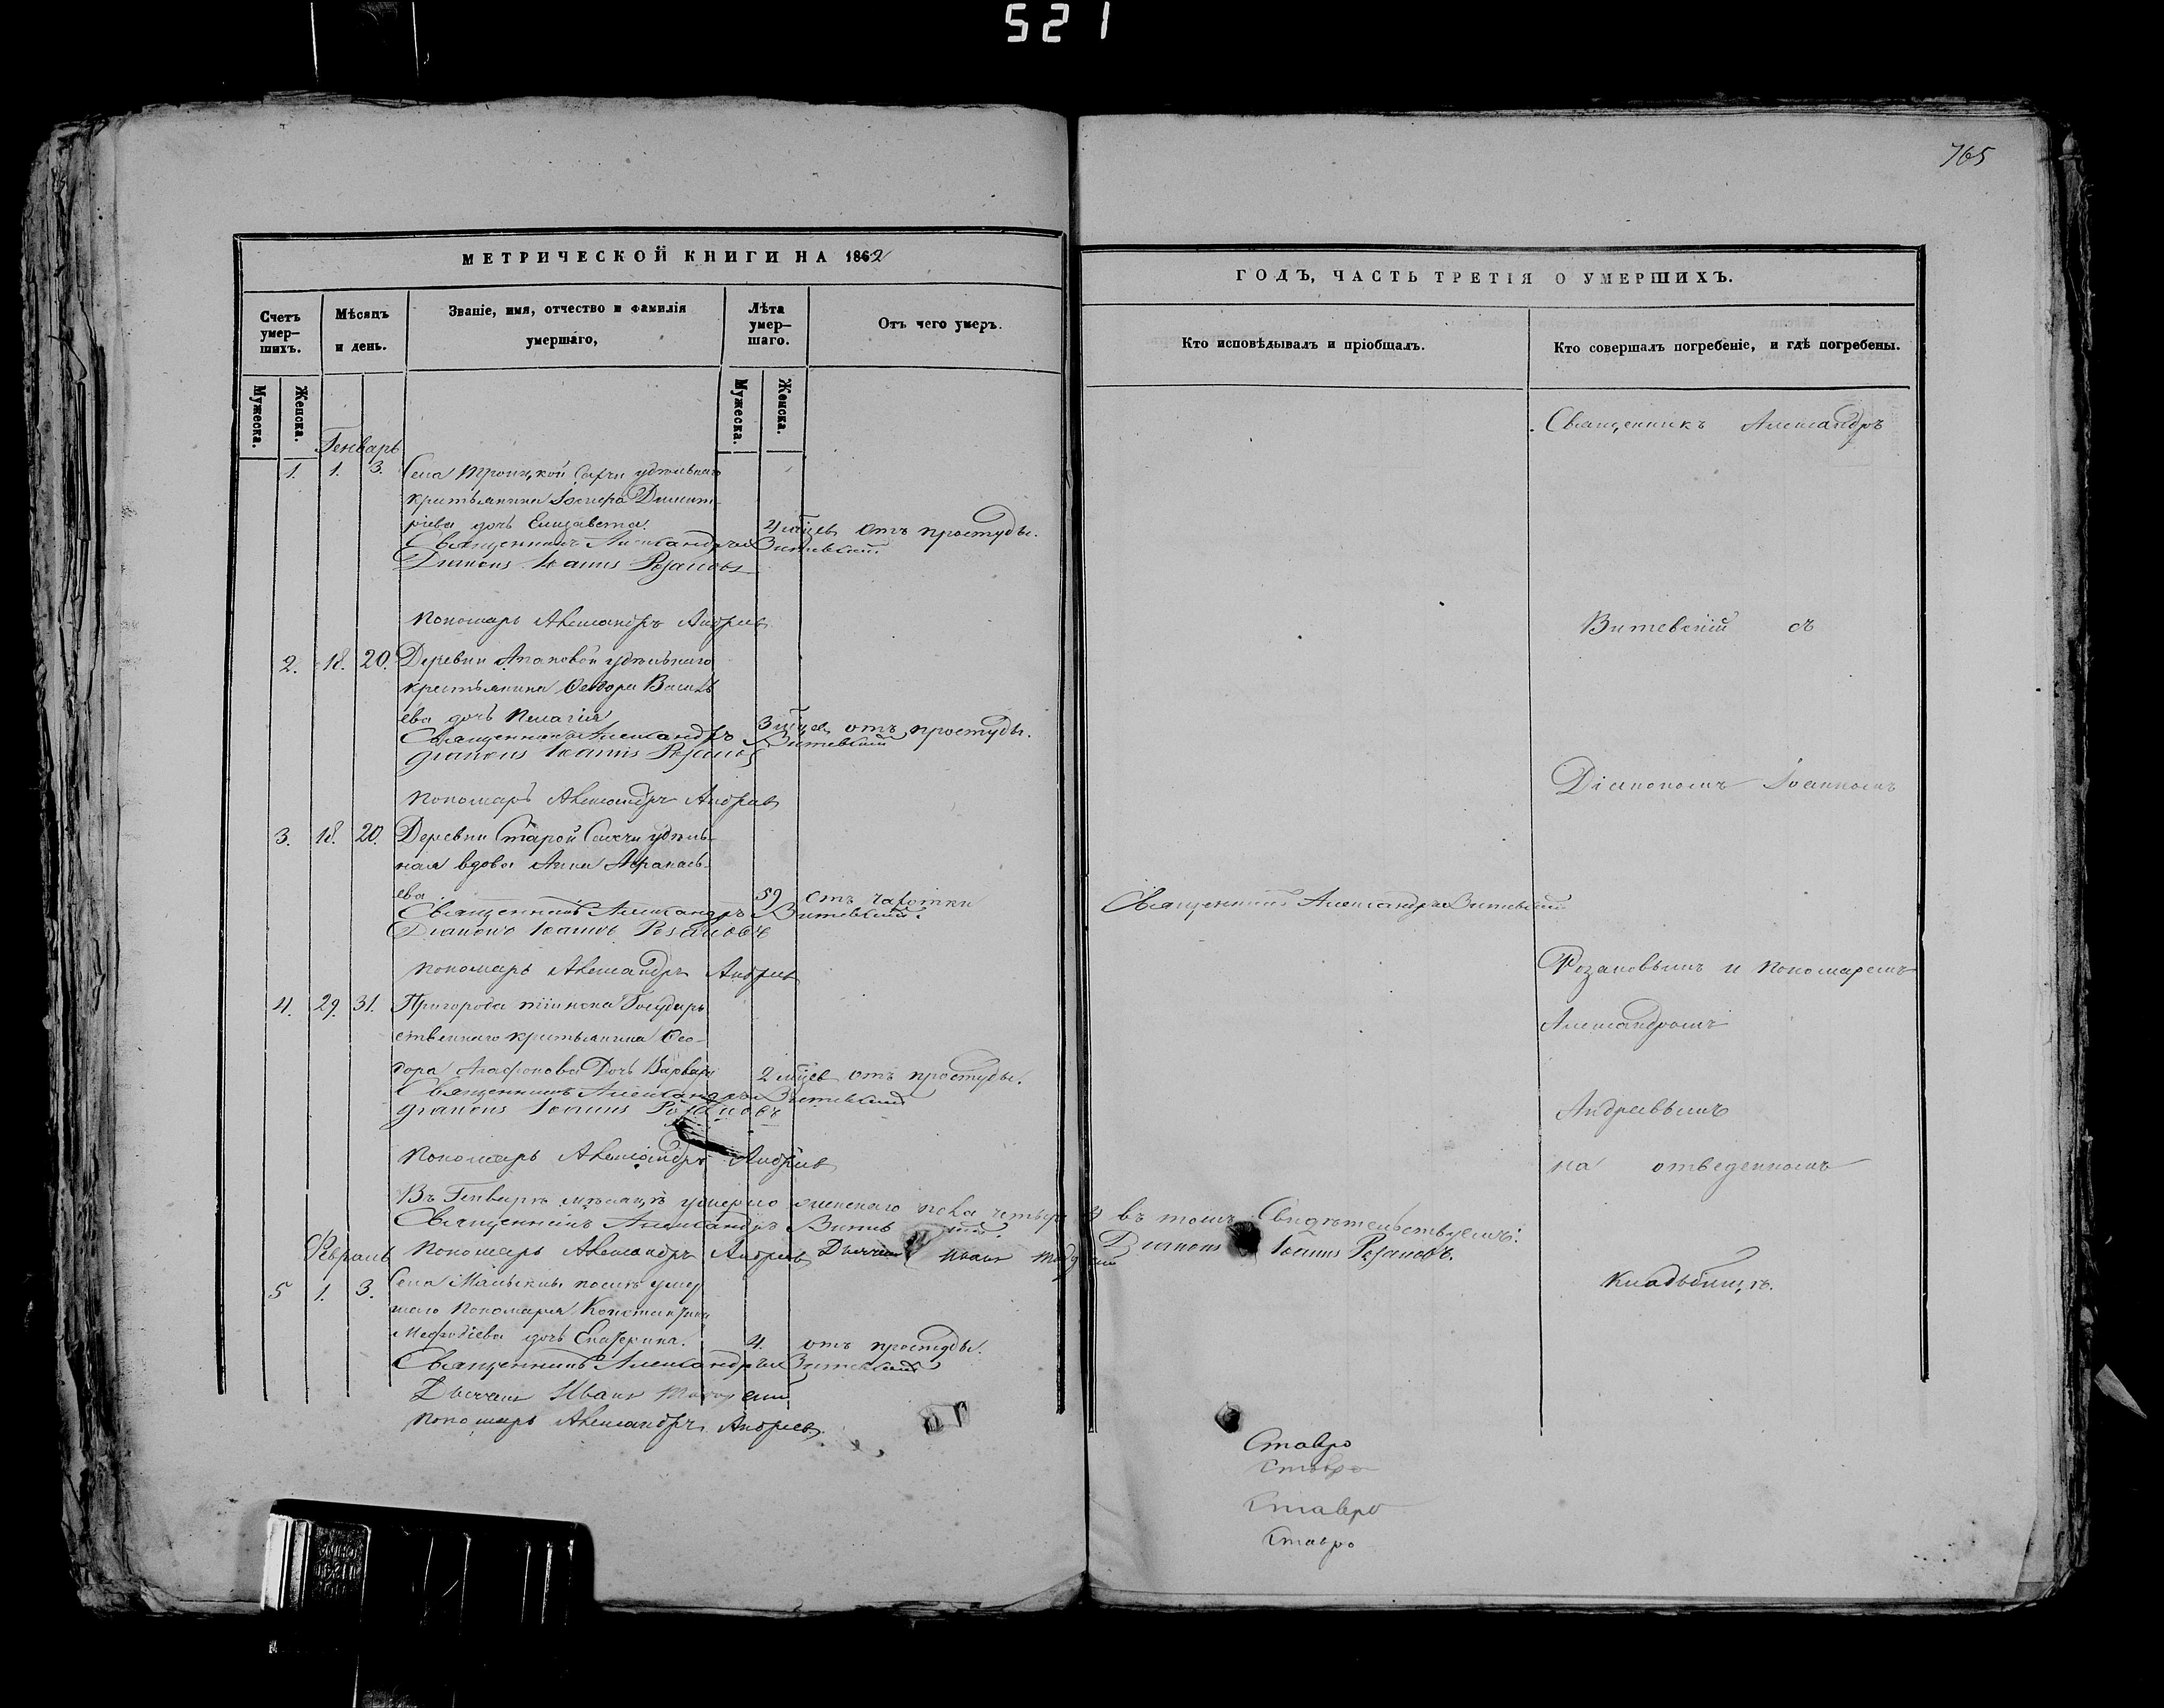 521
765
МЕТРИЧЕСКОЙ КНИГИ НА 1862
Счетъ умер-шихъ.
Мѣсяцъ и день.
Званіе, имя, отчество и фамилія умершаго,
Лѣта умер-шаго.
Отъ чего умеръ.
Мужеска.
Женска.
Мужеска.
Женска.
Генварь
1. 1. 3. Села Троицкой удѣльнаго
крестьянина Димит-
ріева дочь Елизавета. 4 мѣцев отъ простуды.
Священникъ Александръ Витевскій
Діаконъ Іоаннъ Розановъ
Пономарь Александръ Андреевъ
2. 18. 20. Деревни удѣльнаго
крестьянина Ѳеодора Василь
ева дочь Пелагія 3 мѣцев отъ простуды.
Священникъ Александръ Витевскій
Діаконъ Іоаннъ Розановъ
Пономарь Александръ Андреевъ
3. 18. 20. Деревни Старой Сахчи удѣль-
ная вдова Анна Аѳанась-
ева 59 отъ чахотки
Священникъ Александръ Витевскій.
Діаконъ Іоаннъ Розановъ
Пономарь Александръ Андреевъ
4. 29. 31. Пригорода Тіинска Государ
ственнаго крестьянина Ѳео-
дора Агафонова Дочь Варвара 2 мѣцев отъ простуды.
Священникъ Александръ Витевскій
Діаконъ Іоаннъ Розановъ
Пономарь Александръ Андреевъ
Въ Генварѣ мѣсяцѣ умерло женскаго пола четыре
Священникъ Александръ
Февраль Пономарь Александръ Андреевъ Дьячекъ Иванъ
5 1. 3. Села Малыкли послѣ умер
шаго Пономаря Константина
Меѳодіева дочь Екатерина. 4. отъ простуды.
Священникъ Александръ Витевскій
Дьячекъ Иванъ
Пономарь Александръ Андреевъ
ГОДЪ, ЧАСТЬ ТРЕТІЯ О УМЕРШИХЪ.
Кто исповѣдывалъ и пріобщалъ.
Кто совершалъ погребеніе, и гдѣ погребены.
Священникъ Александръ
Витевскій съ
Діакономъ Іоанномъ
Священникъ Александръ Витевскій
Розановымъ и Пономаремъ
Александромъ
Андреевымъ
на отведенномъ
въ томъ Свидѣтельствуемъ:
Діаконъ Іоаннъ Розановъ.
кладбищѣ.
Ставро
Ставро
Ставро
Ставро